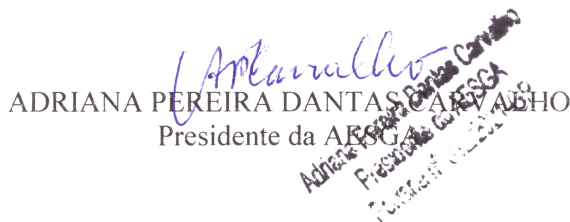 APCarvalho
ADRIANA PEREIRA DANTAS CARVALHO
Presidente da AESGA
Adriana Pereira Dantas Carvalho
Presidente da AESGA
Portaria nº